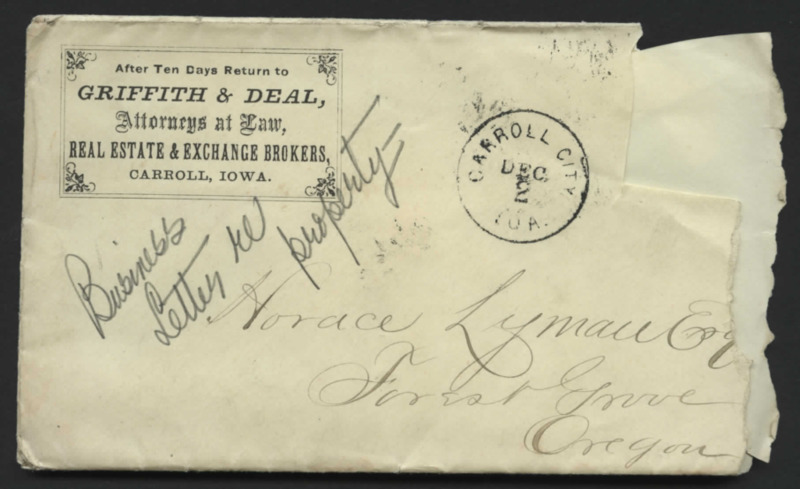 After Ten Days Return to
GRIFFITH & DEAL,
Attorneys at Law,
REAL ESTATE & EXCHANGE BROKERS,
CARROLL, IOWA.
CARROLL CITY
DEC
IOA.
Business
Letter re property-
Horace Lyman Esq
Forest Grove
Oregon